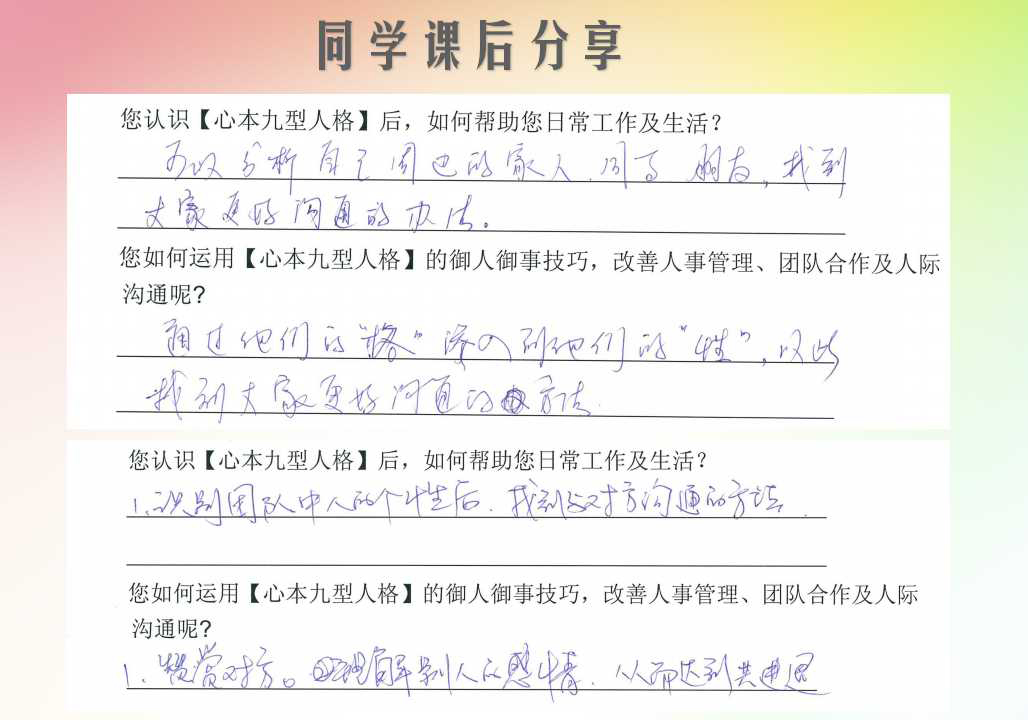 同学课后分享
您认识【心本九型人格】后，如何帮助您日常工作及生活？
可以分析自己周边的家人、同事、朋友，找到
大家更好沟通的办法。
您如何运用【心本九型人格】的御人御事技巧，改善人事管理、团队合作及人际
沟通呢？
通过他们的“格”深入到他们的“性”，以此
找到大家更好沟通的方法.
您认识【心本九型人格】后，如何帮助您日常工作及生活？
1.识别团队中人的个性后、找到与对方沟通的方法.
您如何运用【心本九型人格】的御人御事技巧，改善人事管理、团队合作及人际
沟通呢？
1. 赞赏对方。理解别人的感情、从而达到共